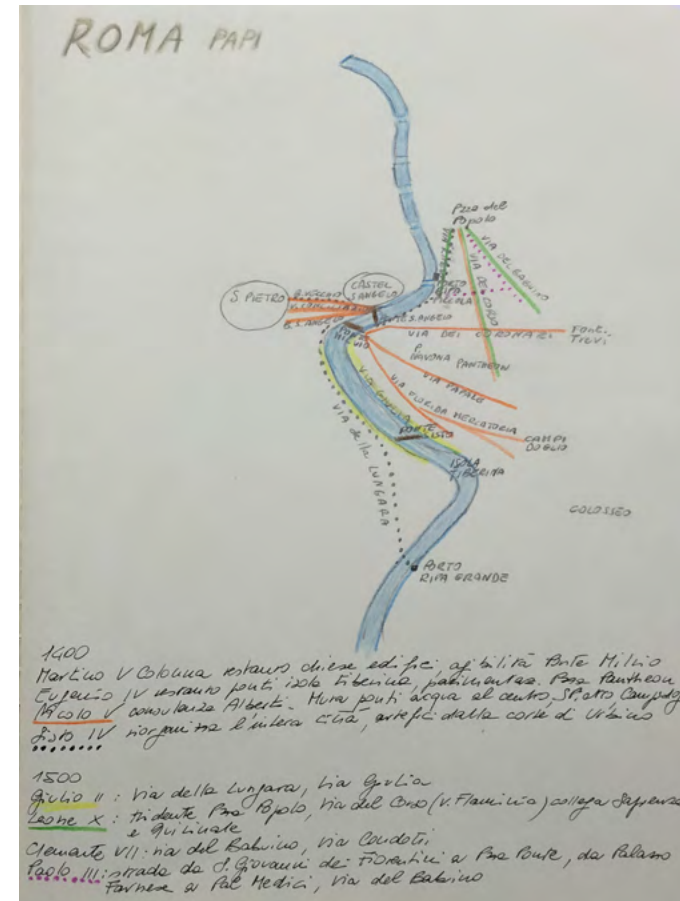 ROMA PAPI
Pzza del
Popolo
VIA DEL BABUINO
VIA DEL CORSO
CASTEL
S. ANGELO
S. PIETRO
B. S. ANGELO
S. ANGELO
VIA DEI CORONARI
FONT.
TREVI
P.
NAVONA PANTHEON
VIA PAPALE
VIA FLORIDA MERCATORIA
VIA GIULIA
PONTE
SISTO
CAMPI
DOGLIO
ISOLA
TIBERINA
VIA della LUNGARA
COLOSSEO
PORTO
RIPA GRANDE
1400
Martino V Colonna restauro chiese edifici, agibilità Ponte Milvio
Eugenio IV restauro ponti isola tiberina, pavimentaz. Pzza Pantheon
Nicolo V consulenza Alberti. Mura ponti acqua al centro, SP,
Sisto IV riorganizza l'intera città, artefici dalla corte di Urbino
1500
Giulio II : via della Lungara, via Giulia
Leone X : tridente Pzza Popolo, via del Corso (v. Flaminia) collega Sapienza
e Quirinale
Clemente VII: via del Babuino, via Condotti
Paolo III: strada da S. Giovanni dei Fiorentini a Pzza Ponte, da Palazzo
Farnese a Pal Medici, via del Babuino